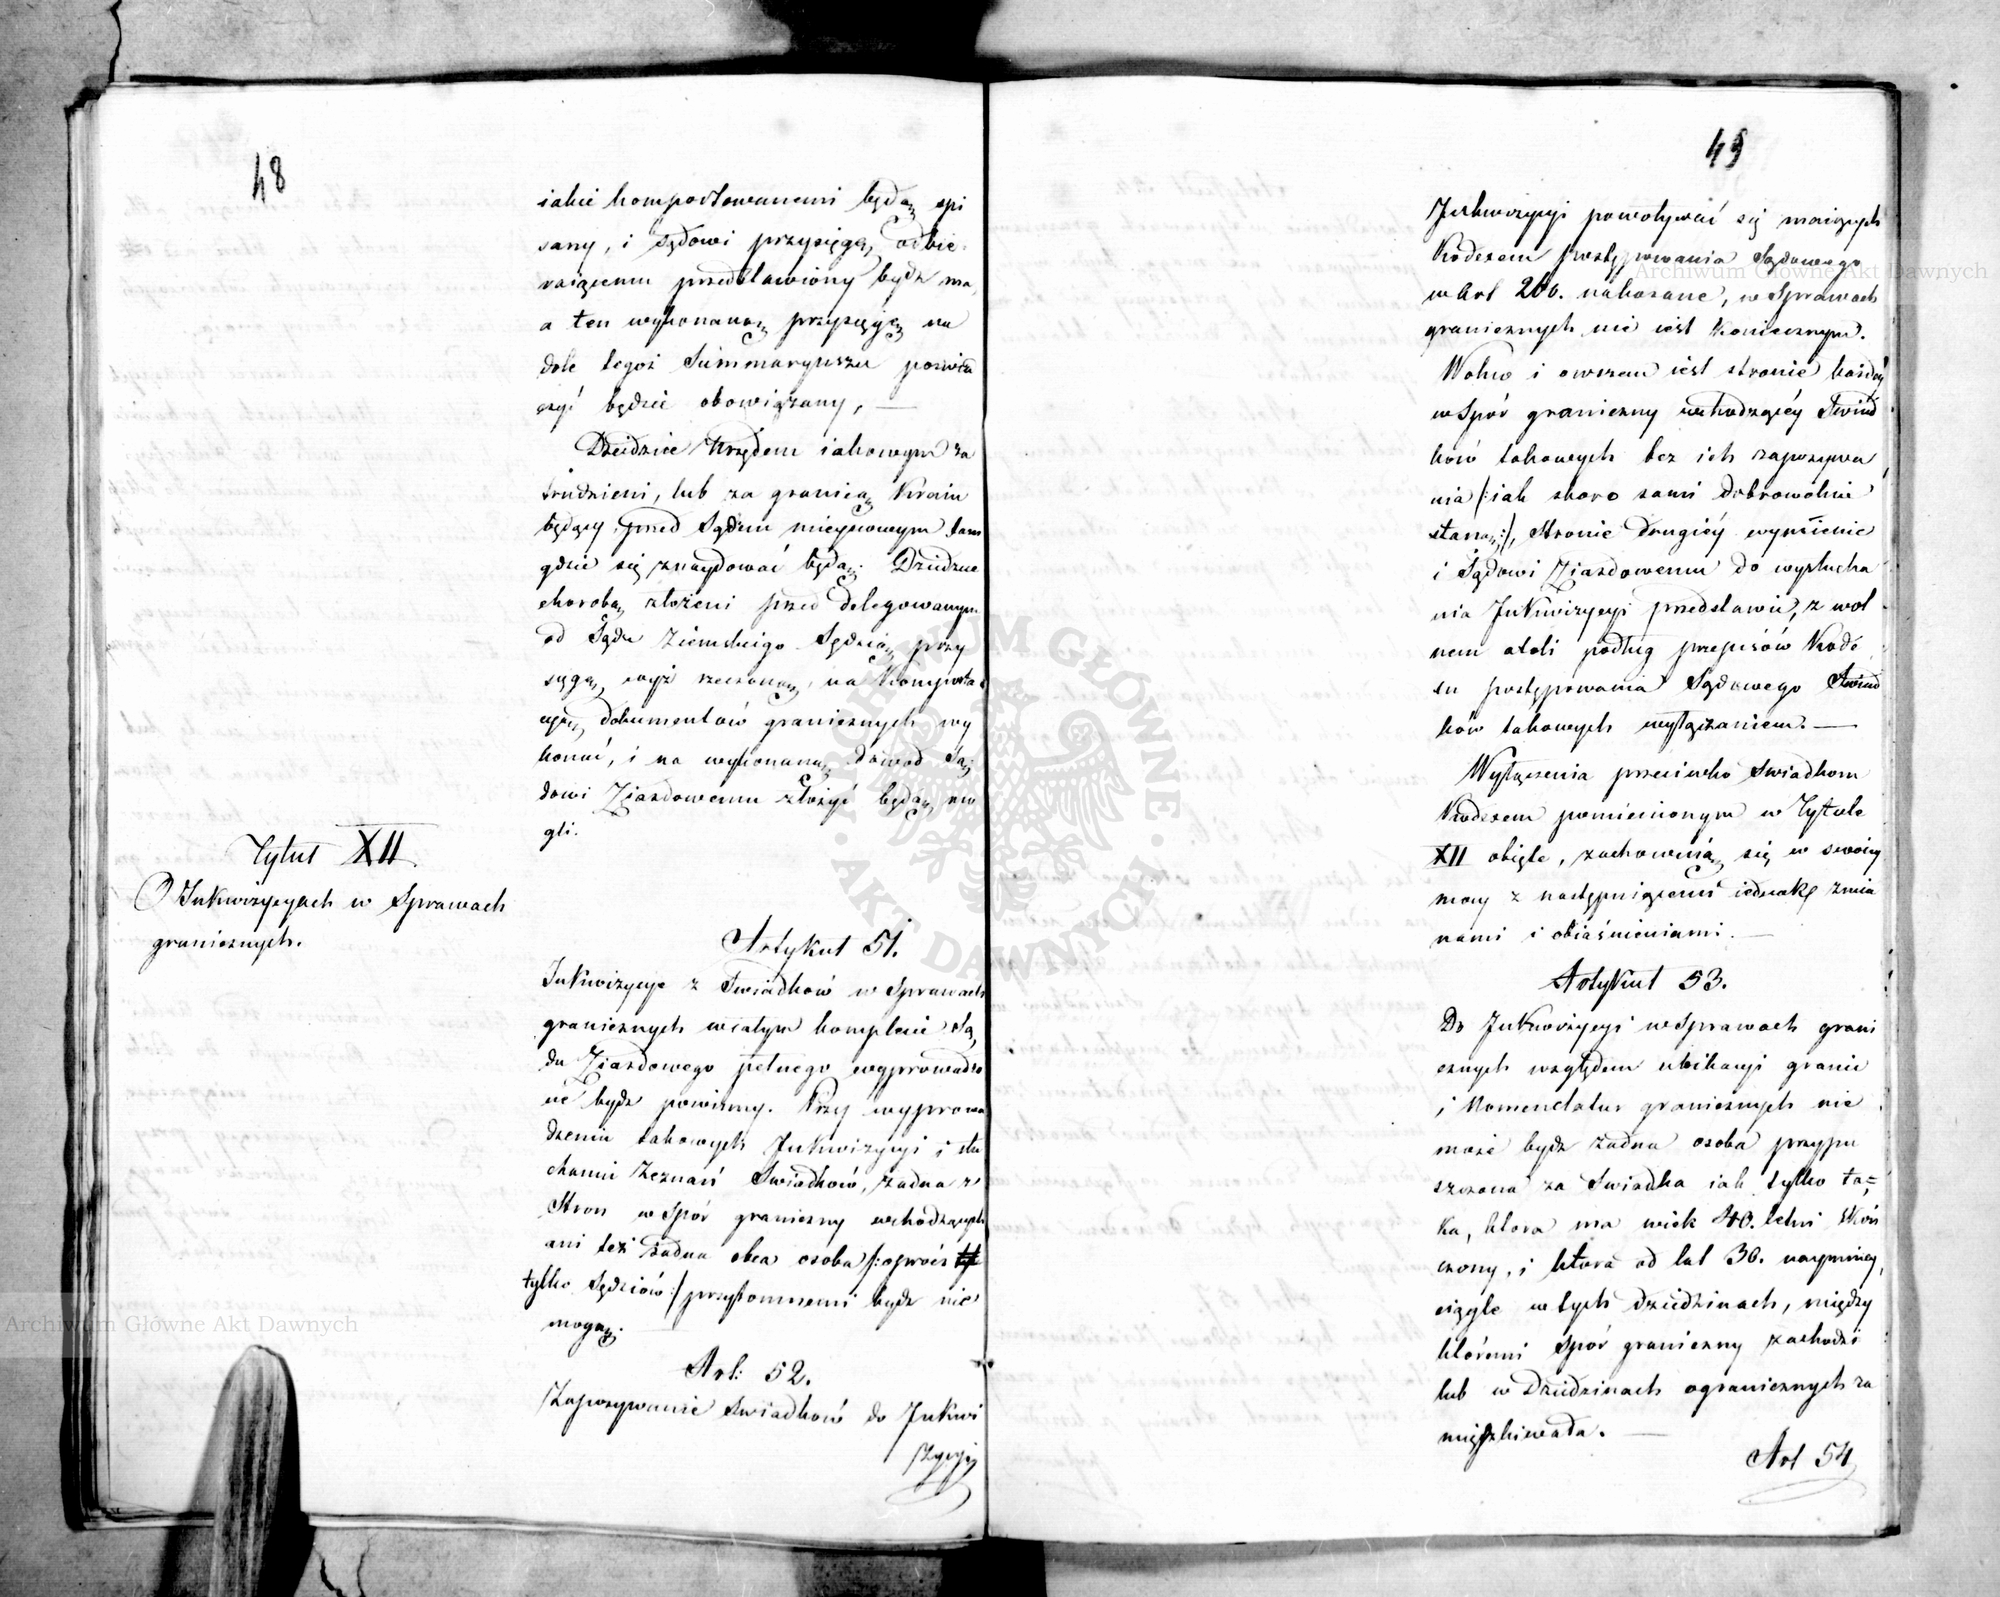 48
iakie komportowanemi będą, spi
sany, i Sędowi przysięgą, odbie-
raiącemu przedstawiony bydź ma,
a ten wykonaną przysięgę na
dole tegoż Summaryusza poświad
czyć będzie obowiązany, —
Dziedzice Urzędem iakowym za
trudnieni, lub za granicą Kraiu
będący, przed Sądem mieyscowym tam
gdzie się znaydować będą; Dziedzice
chorobą, złożeni przed delegowanym
od Sądu Ziemskiego Sędzią, przy
sięgę, wyż rzeczoną, na Komporta
cyą, dokumentów granicznych wy
konać, i na wykonaną, dowód Są,
dowi Zjazdowemu złożyć będą, mo
gli.
Tytuł XII
O Inkwizycyach w Sprawach
granicznych.
Artykuł 51.
Inkwizycye z Swiadków w Sprawach
granicznych w całym komplecie Są,
du Zjazdowego pełnego wyprowadzo
ne bydź powinny. Przy wyprowa
dzeniu takowych Inkwizycyi i słu
chaniu Zeznań Swiadków, żadna z
Stron w Spór graniczny wchodzących
ani też żadna obca osoba /: oprócz
tylko Sędziów :/ przytomnemi bydź nie
mogą.
Art: 52.
Zapozywanie Swiadków do Inkwi
zycyi
49
Inkwizycyi powoływać się maiących
Kodexem postępowania Sądowego
w Art 260. nakazane, w Sprawach
granicznych nie iest koniecznym.
Wolno i owszem iest stronie każdey
w Spór graniczny wchodzącéy Swiad
ków takowych bez ich zapozywa
nia /: iak skoro sami dobrowolnie
staną :/, Stronie drugiéy wymienić
i Sądowi Zjazdowemu do wysłucha
nia Inkwizycyi przedstawić, z wol
nem atoli podług przepisów Kode
xu postępowania Sądowego Swiad
ków takowych wyłączaniem. —
Wyłączenia przeciwko Swiadkom
Kodexem pomienionym w Tytule
XII obięte, zachowuią, się w swoiey
mocy z następuiącemi iednak zmia
nami i obiaśnieniami. —
Artykuł 53.
Do Inkwizycyi w Sprawach grani
cznych względem ubikacyi granic
i Nomenclatur granicznych nie
może bydź żadna osoba przypu
szczona za Swiadka iak tylko ta=
ka, ktora ma wiek 40. letni skoń
czony, i ktora od lat 30. naymniey,
ciągle w tych dziedzinach, między
któremi Spór graniczny zachodzi
lub w Dziedzinach ogranicznych za
mięszkiwała. —
Art 54
Archiwum Główne Akt Dawnych
Archiwum Główne Akt Dawnych
ARCHIWUM GŁÓWNE · AKT DAWNYCH ·